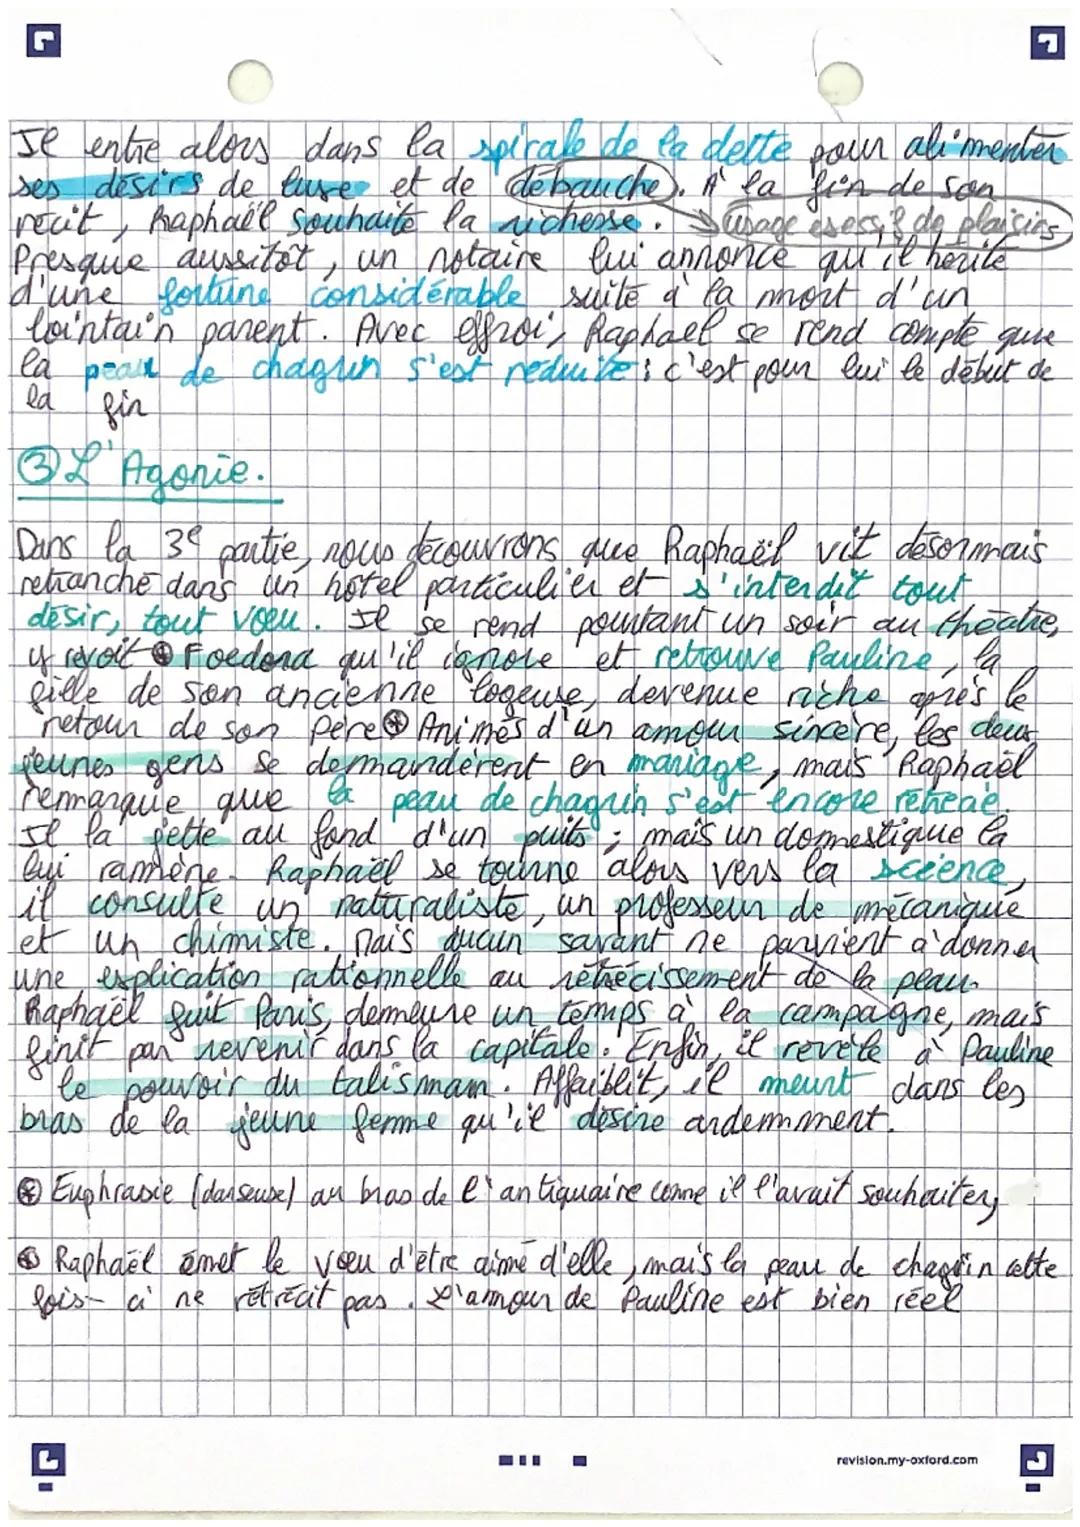 Il entre alors dans la spirale de la dette pour alimenter
ses désirs de luxe et de débauche. A la fin de son
récit, Raphaël souhaite la richesse. usage exessif de plaisirs
Presque aussitôt, un notaire lui annonce qu'il hérite
d'une fortune considérable suite à la mort d'un
lointain parent. Avec effroi, Raphaël se rend compte que
la peau de chagrin s'est réduite : c'est pour lui le début de
la fin
③ L'Agonie.
Dans la 3e partie, nous découvrons que Raphaël vit désormais
retranché dans un hôtel particulier et s'interdit tout
désir, tout voeu. Il se rend pourtant un soir au théâtre,
y revoit ⊛ Foedora qu'il ignore et retrouve Pauline, la
fille de son ancienne logeuse, devenue riche après le
retour de son père ⊛ Animés d'un amour sincère, les deux
jeunes gens se demandèrent en mariage, mais Raphaël
remarque que la peau de chagrin s'est encore rétréciе.
Il la jette au fond d'un puits ; mais un domestique la
lui ramène. Raphaël se tourne alors vers la science,
il consulte un naturaliste, un professeur de mécanique
et un chimiste. Mais aucun savant ne parvient à donner
une explication rationnelle au rétrécissement de la peau.
Raphaël fuit Paris, demeure un temps à la campagne, mais
finit par revenir dans la capitale. Enfin, il révèle à Pauline
le pouvoir du talisman. Affaiblit, il meurt dans les
bras de la jeune femme qu'il désire ardemment.
⊛ Euphrasie (danseuse) au bras de l'antiquaire comme il l'avait souhaiter,
⊛ Raphaël émet le voeu d'être aimé d'elle, mais la peau de chagrin cette
fois-ci ne rétrécit pas. L'amour de Pauline est bien réel
revision.my-oxford.com